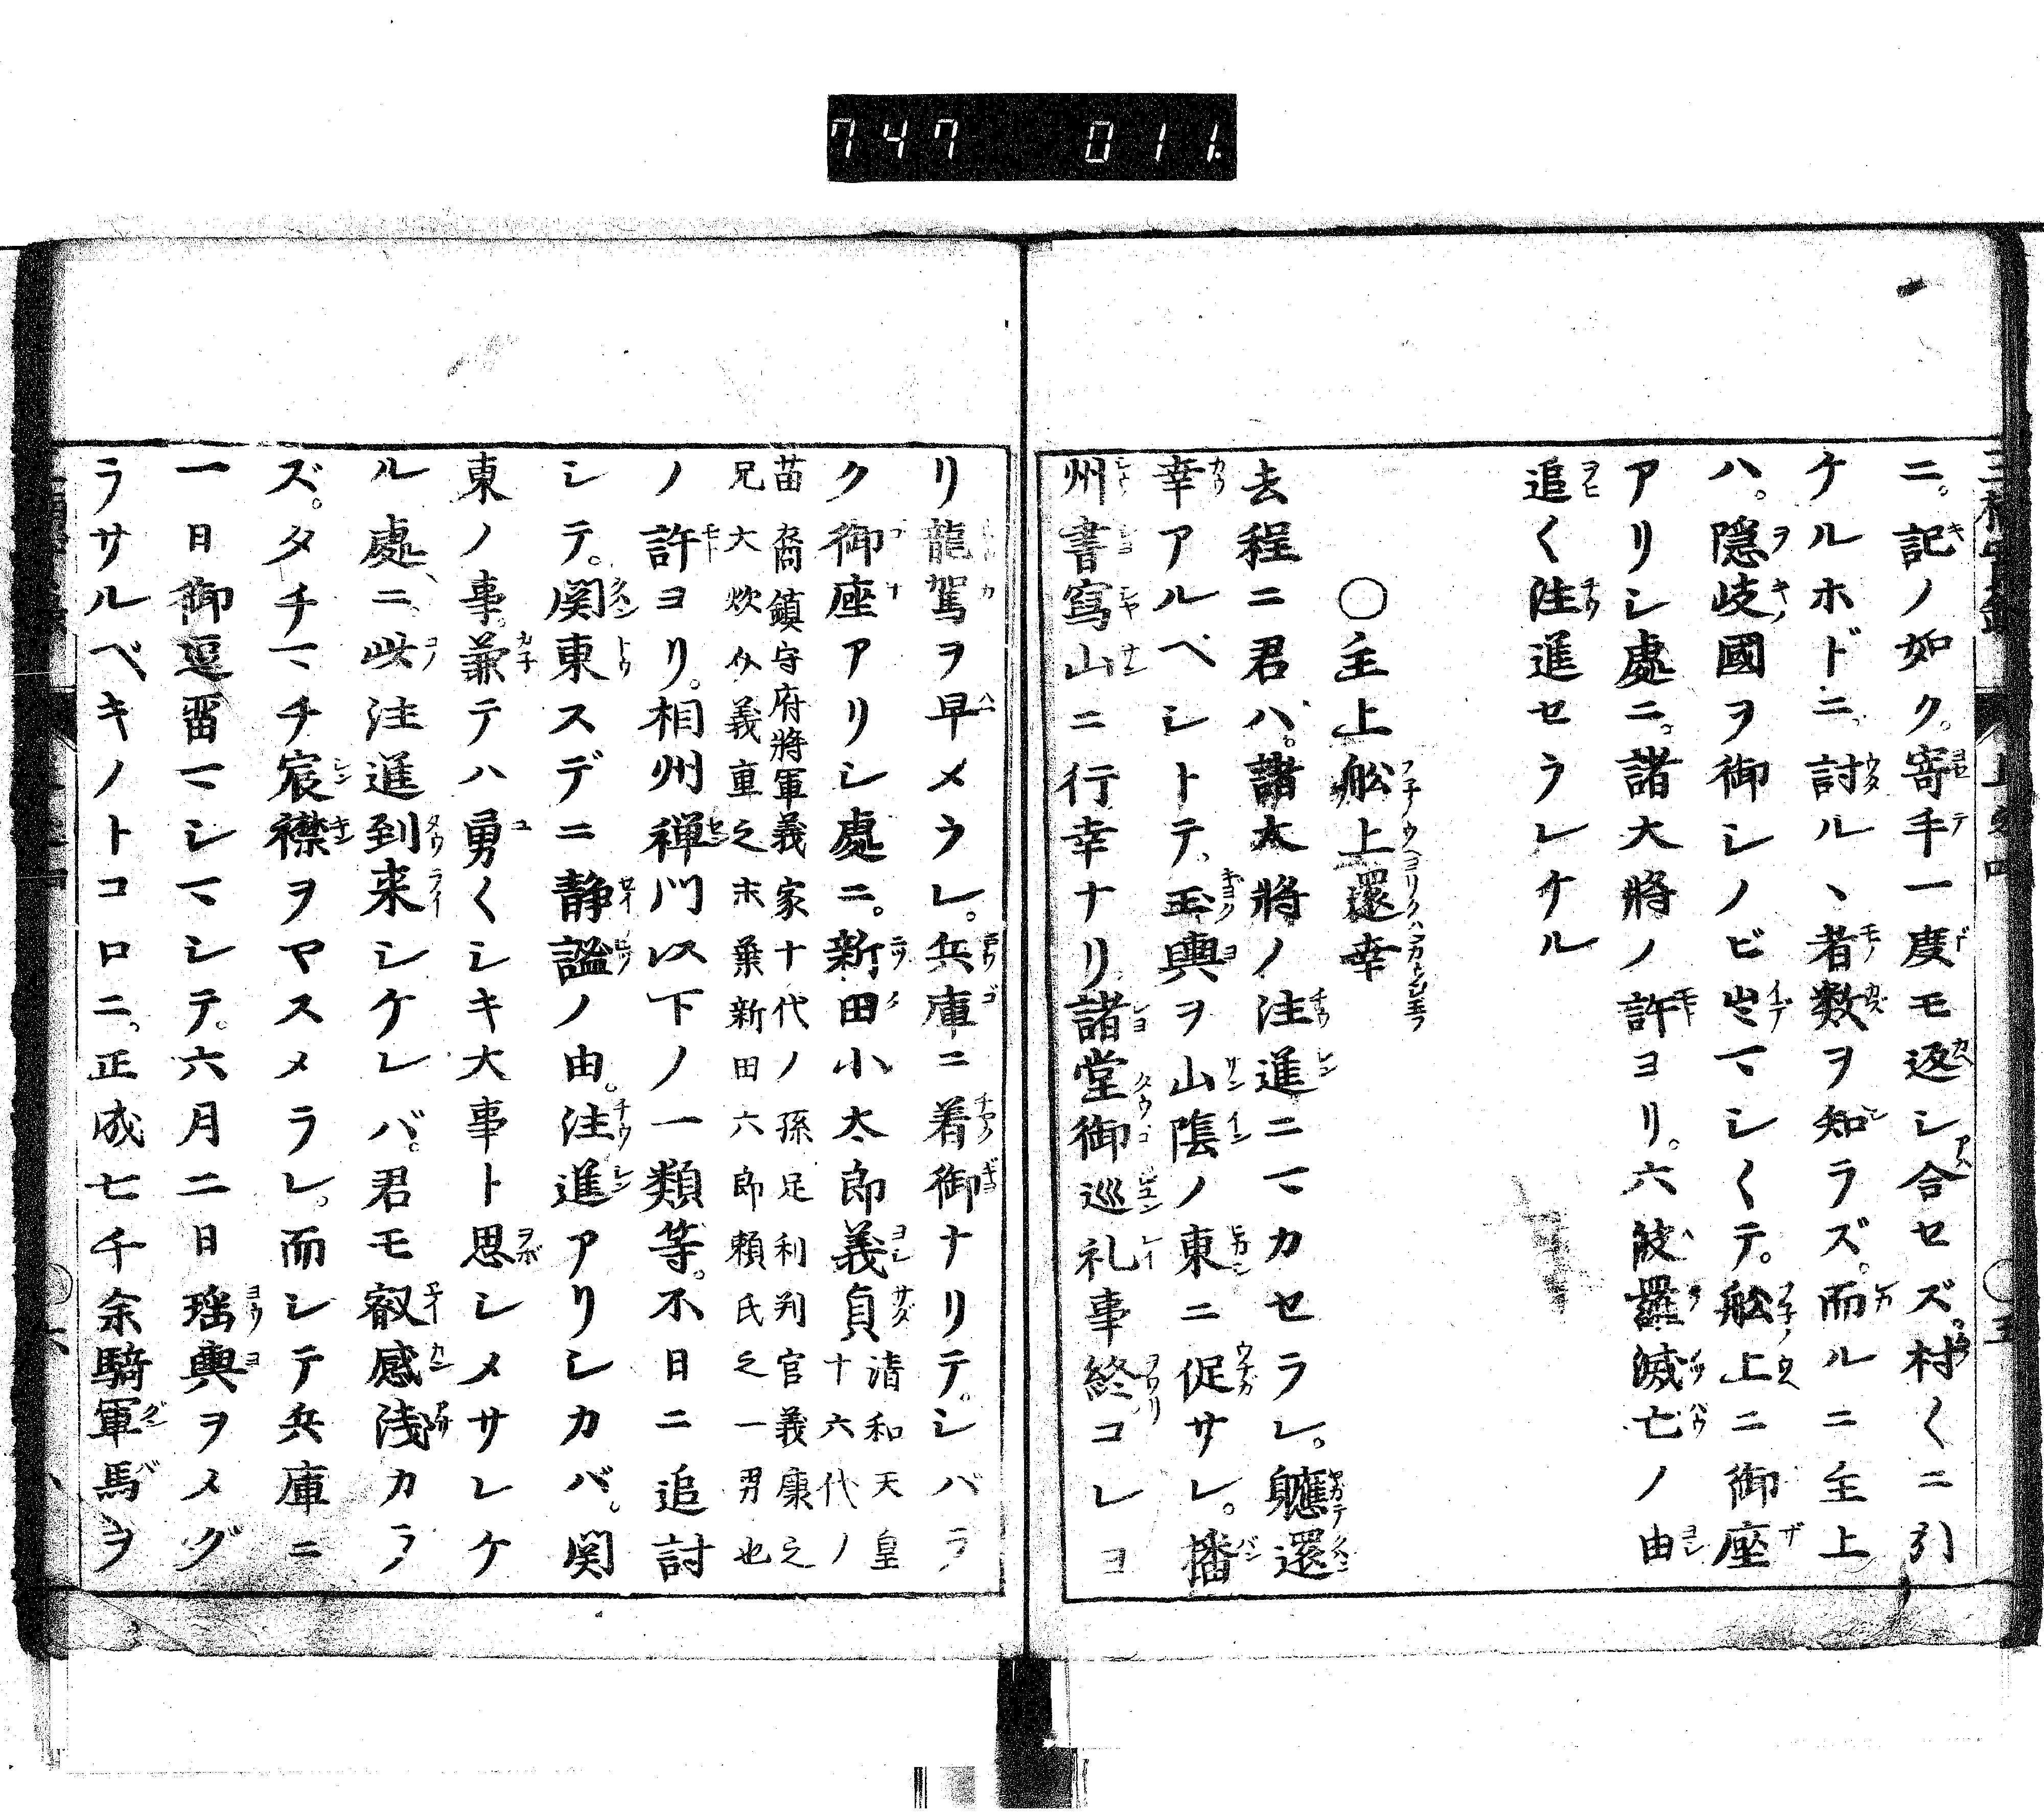 747 011.
ニ。記ノ如ク。寄手一度モ返シ合セズ。村〱ニ引
ケルホドニ。討ルヽ者数ヲ知ラズ。而ルニ主上
ハ。隠岐國ヲ御シノビ出マシ〱テ。舩上ニ御座
アリシ處ニ。諸大將ノ許ヨリ。六波羅滅亡ノ由
追〱注進セラレケル
〇主上舩上還幸
去程ニ君ハ。諸大將ノ注進ニマカセラレ。軈還
幸アルベシトテ。玉輿ヲ山陰ノ東ニ促サレ。播
州書寫山ニ行幸ナリ。諸堂御巡礼事終コレヨ
リ龍駕ヲ早メラレ。兵庫ニ着御ナリテ。シバラ
ク御座アリシ處ニ。新田小太郎義貞清和天皇十六代ノ
苗裔鎮守府將軍義家十代ノ孫足利判官義康之
兄大炊介義重之末葉新田六郎頼氏之一男也
ノ許ヨリ。相州禅門以下ノ一類等。不日ニ追討
シテ。関東スデニ静謐ノ由。注進アリシカバ。関
東ノ事。兼テハ勇〱シキ大事ト思シメサレケ
ル處ニ。此注進到来シケレバ。君モ叡感浅カラ
ズ。タチマチ宸襟ヲヤスメラレ。而シテ兵庫ニ
一日御逗畱マシマシテ。六月二日瑶輿ヲメグ
ラサルベキノトコロニ。正成七千余騎軍馬ヲ